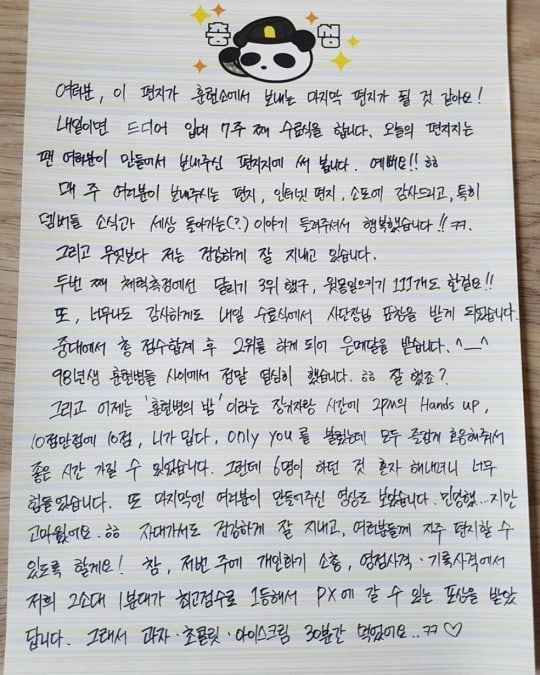 충성
여러분, 이 편지가 훈련소에서 보내는 마지막 편지가 될 것 같아요!
내일이면 드디어 입대 7주 째 수료식을 합니다. 오늘의 편지지는
팬 여러분이 만들어서 보내주신 편지지에 써 봅니다. 예뻐요!! ㅎㅎ
매 주 여러분이 보내주시는 편지, 인터넷 편지, 소포에 감사드리고, 특히
멤버들 소식과 세상 돌아가는(?) 이야기 들려주셔서 행복했습니다!! ㅋㅋ.
그리고 무엇보다 저는 건강하게 잘 지내고 있습니다.
두번 째 체력측정에선 달리기 3위 했구, 윗몸일으키기 111개도 한걸요!!
또, 너무나도 감사하게도 내일 수료식에서 사단장님 표창을 받게 되었습니다.
중대에서 총 점수합계 후 2위를 하게 되어 은메달을 받습니다. ^__^
98년생 훈련병들 사이에서 정말 열심히 했습니다. ㅎㅎ 잘 했죠?
그리고 어제는 '훈련병의 밤' 이라는 장기자랑 시간에 2pm의 Hands up,
10점만점에 10점, 니가 밉다, only you 를 불렀는데 모두 즐겁게 호응해줘서
좋은 시간 가질 수 있었습니다. 그런데 6명이 하던 것 혼자 해내려니 너무
힘들었습니다. 또 마지막엔 여러분이 만들어주신 영상도 보았습니다. 민망했...지만
고마웠어요. ㅎㅎ 자대가서도 건강하게 잘 지내고, 여러분들께 자주 편지할 수
있도록 할게요! 참, 저번 주에 개인화기 소총, 영점사격·기록사격에서
저희 2소대 1분대가 최고점수로 1등해서 PX에 갈 수 있는 포상을 받았
답니다. 그래서 과자·초콜릿·아이스크림 30분간 먹었어요..ㅋㅋ ♡